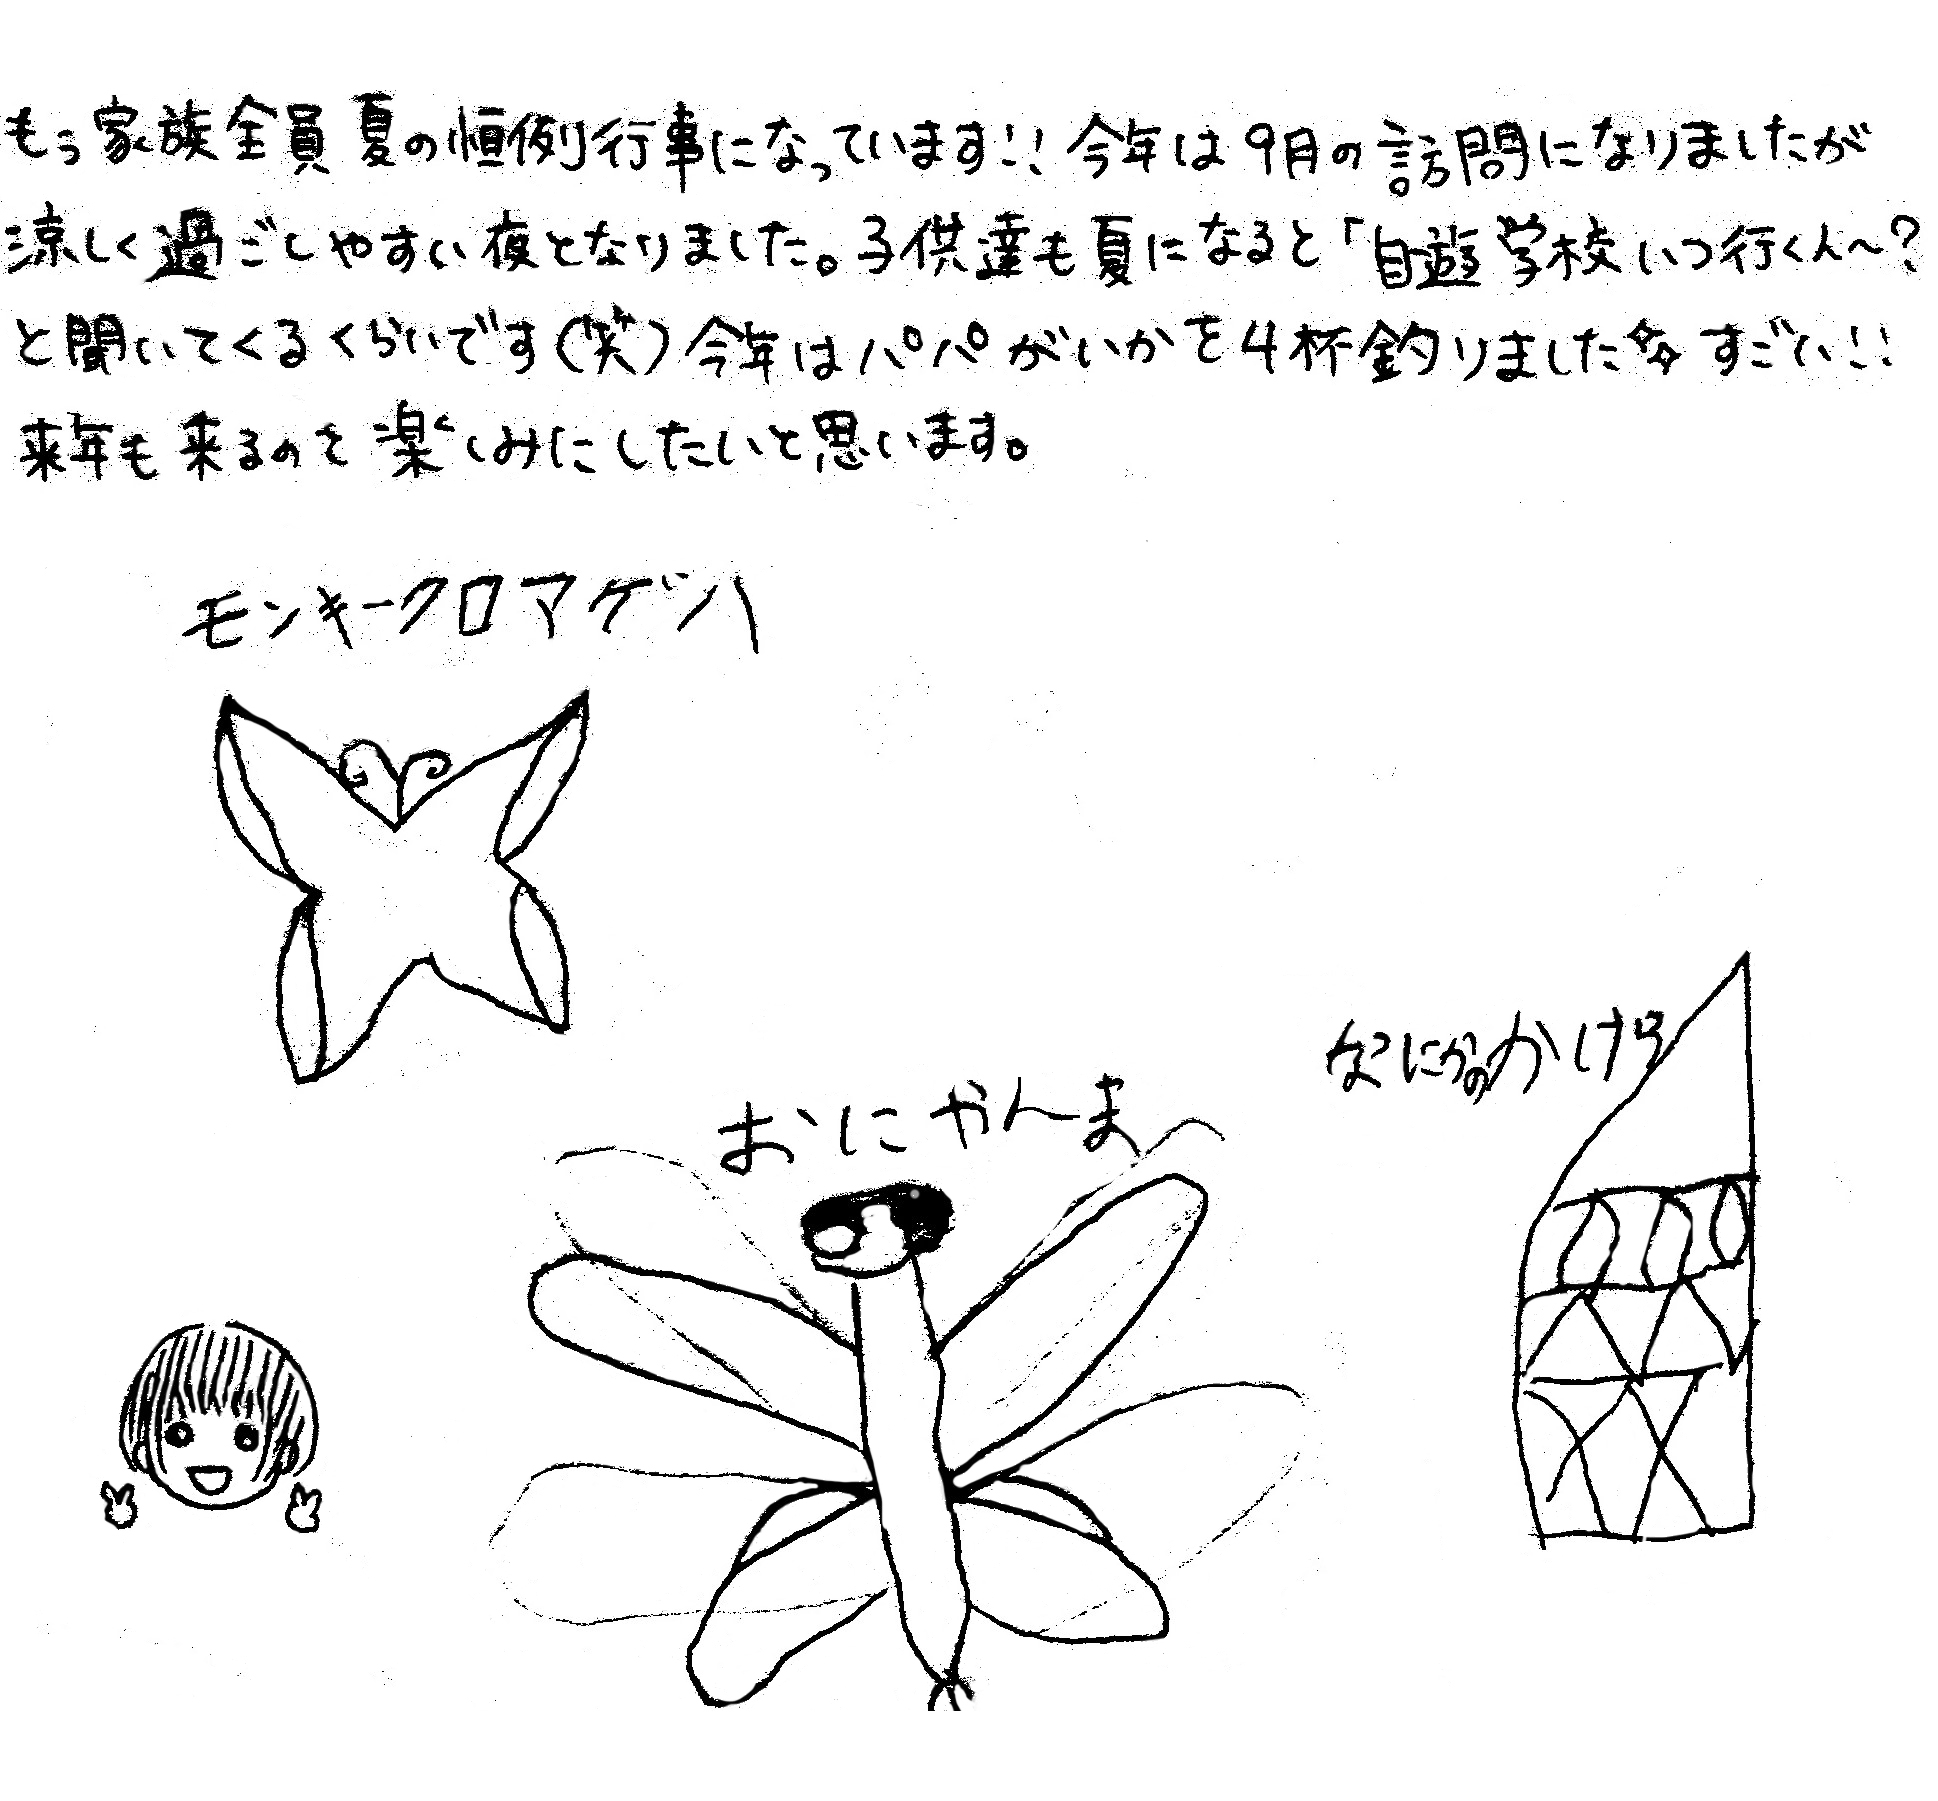 もう家族全員夏の恒例行事になっています!! 今年は9月の訪問になりましたが
涼しく過ごしやすい夜となりました。子供達も夏になると「自遊学校いつ行くん〜?
と聞いてくるくらいです(笑)今年はパパがいかを4杯釣りました すごい!!
来年も来るのを楽しみにしたいと思います。
モンキークロアゲハ
なにかのかけら
おにやんま